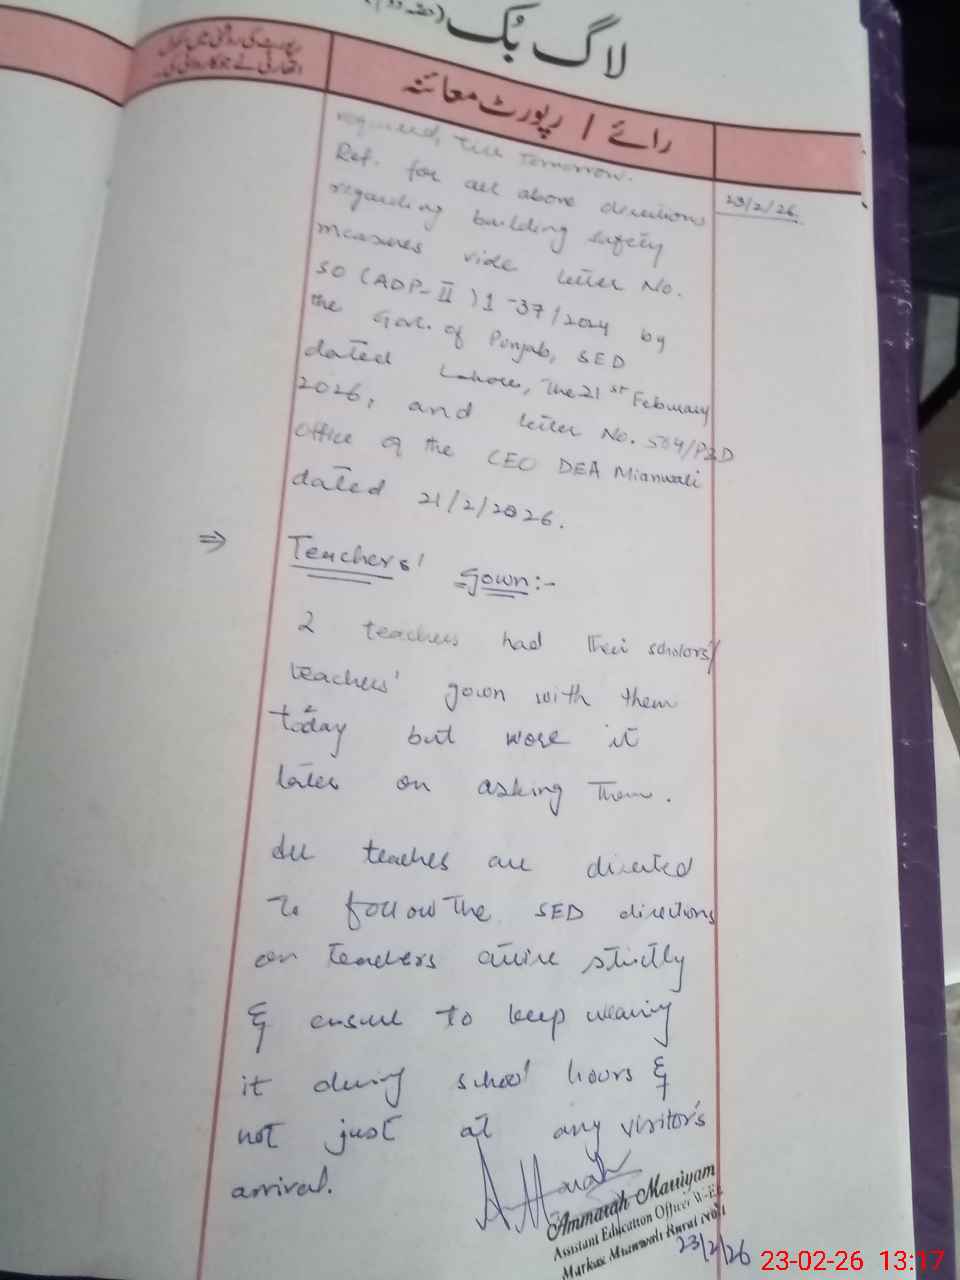 لاگ بُک (حصہ دوم)
رپورٹ کی روشنی میں
اتھارٹی نے جو کاروائی کی۔
رائے / رپورٹ معائنہ
23/2/26.
required, till tomorrow.
Ref. for all above directions
regarding building safety
measures vide letter No.
SO (ADP-II) 1-37/2024 by
the Gov. of Punjab, SED
dated Lahore, the 21st February
2026, and letter No. 504/P&D
office of the CEO DEA Mianwali
dated 21/2/2026.
⇒ Teachers' Gown:-
2 teachers had their scholors/
teachers' gown with them
today but wore it
later on asking them.
All teaches are directed
to follow the SED directions
on teachers attire strictly
& ensure to keep wearing
it during school hours &
not just at any visitor's
arrival.
Ammarah Mariyam
Assistant Education Officer W-EE
Markaz Mianwali Rural No.1
23/2/26
23-02-26 13:17